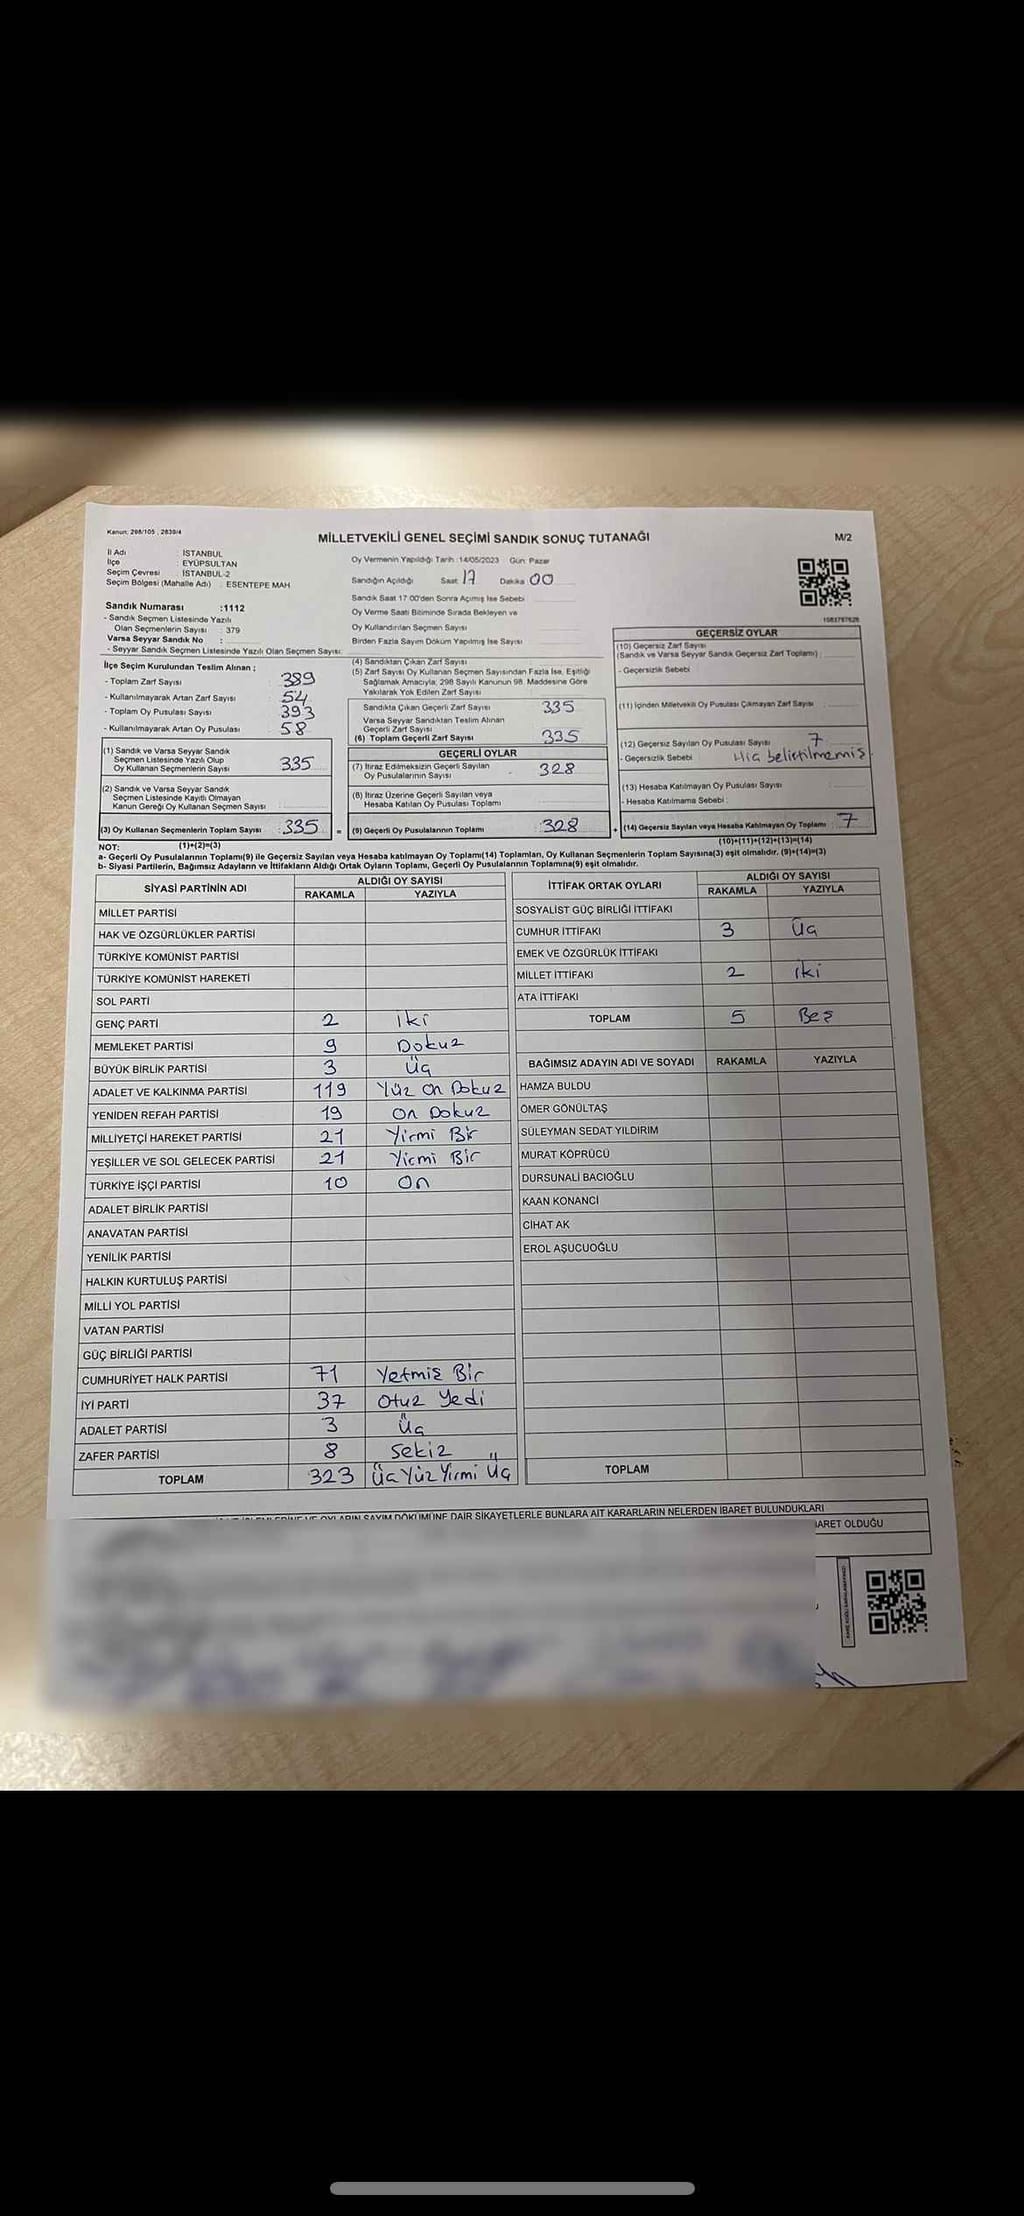 Kanun: 298/105 , 2839/4
MİLLETVEKİLİ GENEL SEÇİMİ SANDIK SONUÇ TUTANAĞI
M/2
İl Adı : İSTANBUL
İlçe : EYÜPSULTAN
Seçim Çevresi : İSTANBUL-2
Seçim Bölgesi (Mahalle Adı) : ESENTEPE MAH
Sandık Numarası :1112
- Sandık Seçmen Listesinde Yazılı
Olan Seçmenlerin Sayısı : 379
Varsa Seyyar Sandık No :
- Seyyar Sandık Seçmen Listesinde Yazılı Olan Seçmen Sayısı:
Oy Vermenin Yapıldığı Tarih :14/05/2023 Gün: Pazar
Sandığın Açıldığı Saat 17 Dakika 00
Sandık Saat 17.00'den Sonra Açılmış İse Sebebi
Oy Verme Saati Bitiminde Sırada Bekleyen ve
Oy Kullandırılan Seçmen Sayısı
Birden Fazla Sayım Döküm Yapılmış İse Sayısı
İlçe Seçim Kurulundan Teslim Alınan ;
- Toplam Zarf Sayısı : 389
- Kullanılmayarak Artan Zarf Sayısı : 54
- Toplam Oy Pusulası Sayısı : 393
- Kullanılmayarak Artan Oy Pusulası : 58
(1) Sandık ve Varsa Seyyar Sandık
Seçmen Listesinde Yazılı Olup
Oy Kullanan Seçmenlerin Sayısı : 335
(2) Sandık ve Varsa Seyyar Sandık
Seçmen Listesinde Kayıtlı Olmayan
Kanun Gereği Oy Kullanan Seçmen Sayısı :
(3) Oy Kullanan Seçmenlerin Toplam Sayısı : 335 =
(1)+(2)=(3)
(4) Sandıktan Çıkan Zarf Sayısı
(5) Zarf Sayısı Oy Kullanan Seçmen Sayısından Fazla İse, Eşitliği
Sağlamak Amacıyla, 298 Sayılı Kanunun 98. Maddesine Göre
Yakılarak Yok Edilen Zarf Sayısı
Sandıkta Çıkan Geçerli Zarf Sayısı 335
Varsa Seyyar Sandıktan Teslim Alınan
Geçerli Zarf Sayısı
(6) Toplam Geçerli Zarf Sayısı 335
GEÇERLİ OYLAR
(7) İtiraz Edilmeksizin Geçerli Sayılan
Oy Pusulalarının Sayısı 328
(8) İtiraz Üzerine Geçerli Sayılan veya
Hesaba Katılan Oy Pusulası Toplamı
(9) Geçerli Oy Pusulalarının Toplamı 328 +
1583787626
GEÇERSİZ OYLAR
(10) Geçersiz Zarf Sayısı
(Sandık ve Varsa Seyyar Sandık Geçersiz Zarf Toplamı) :
- Geçersizlik Sebebi
(11) İçinden Milletvekili Oy Pusulası Çıkmayan Zarf Sayısı
(12) Geçersiz Sayılan Oy Pusulası Sayısı 7
- Geçersizlik Sebebi Hiç belirtilmemiş
(13) Hesaba Katılmayan Oy Pusulası Sayısı
- Hesaba Katılmama Sebebi :
(14) Geçersiz Sayılan veya Hesaba Katılmayan Oy Toplamı : 7
(10)+(11)+(12)+(13)=(14)
NOT:
a- Geçerli Oy Pusulalarının Toplamı(9) ile Geçersiz Sayılan veya Hesaba katılmayan Oy Toplamı(14) Toplamları, Oy Kullanan Seçmenlerin Toplam Sayısına(3) eşit olmalıdır. (9)+(14)=(3)
b- Siyasi Partilerin, Bağımsız Adayların ve İttifakların Aldığı Ortak Oyların Toplamı, Geçerli Oy Pusulalarının Toplamına(9) eşit olmalıdır.
SİYASİ PARTİNİN ADI
ALDIĞI OY SAYISI
RAKAMLA YAZIYLA
MİLLET PARTİSİ
HAK VE ÖZGÜRLÜKLER PARTİSİ
TÜRKİYE KOMÜNİST PARTİSİ
TÜRKİYE KOMÜNİST HAREKETİ
SOL PARTİ
GENÇ PARTİ 2 İki
MEMLEKET PARTİSİ 9 Dokuz
BÜYÜK BİRLİK PARTİSİ 3 Üç
ADALET VE KALKINMA PARTİSİ 119 Yüz On Dokuz
YENİDEN REFAH PARTİSİ 19 On Dokuz
MİLLİYETÇİ HAREKET PARTİSİ 21 Yirmi Bir
YEŞİLLER VE SOL GELECEK PARTİSİ 21 Yirmi Bir
TÜRKİYE İŞÇİ PARTİSİ 10 On
ADALET BİRLİK PARTİSİ
ANAVATAN PARTİSİ
YENİLİK PARTİSİ
HALKIN KURTULUŞ PARTİSİ
MİLLİ YOL PARTİSİ
VATAN PARTİSİ
GÜÇ BİRLİĞİ PARTİSİ
CUMHURİYET HALK PARTİSİ 71 Yetmiş Bir
İYİ PARTİ 37 Otuz Yedi
ADALET PARTİSİ 3 Üç
ZAFER PARTİSİ 8 Sekiz
TOPLAM 323 Üç Yüz Yirmi Üç
İTTİFAK ORTAK OYLARI
ALDIĞI OY SAYISI
RAKAMLA YAZIYLA
SOSYALİST GÜÇ BİRLİĞİ İTTİFAKI
CUMHUR İTTİFAKI 3 Üç
EMEK VE ÖZGÜRLÜK İTTİFAKI
MİLLET İTTİFAKI 2 İki
ATA İTTİFAKI
TOPLAM 5 Beş
BAĞIMSIZ ADAYIN ADI VE SOYADI RAKAMLA YAZIYLA
HAMZA BULDU
ÖMER GÖNÜLTAŞ
SÜLEYMAN SEDAT YILDIRIM
MURAT KÖPRÜCÜ
DURSUNALİ BACIOĞLU
KAAN KONANCİ
CİHAT AK
EROL AŞUCUOĞLU
TOPLAM
OYLARIN SAYIM DÖKÜMÜNE DAİR ŞİKAYETLERLE BUNLARA AİT KARARLARIN NELERDEN İBARET BULUNDUKLARI
BARET OLDUĞU